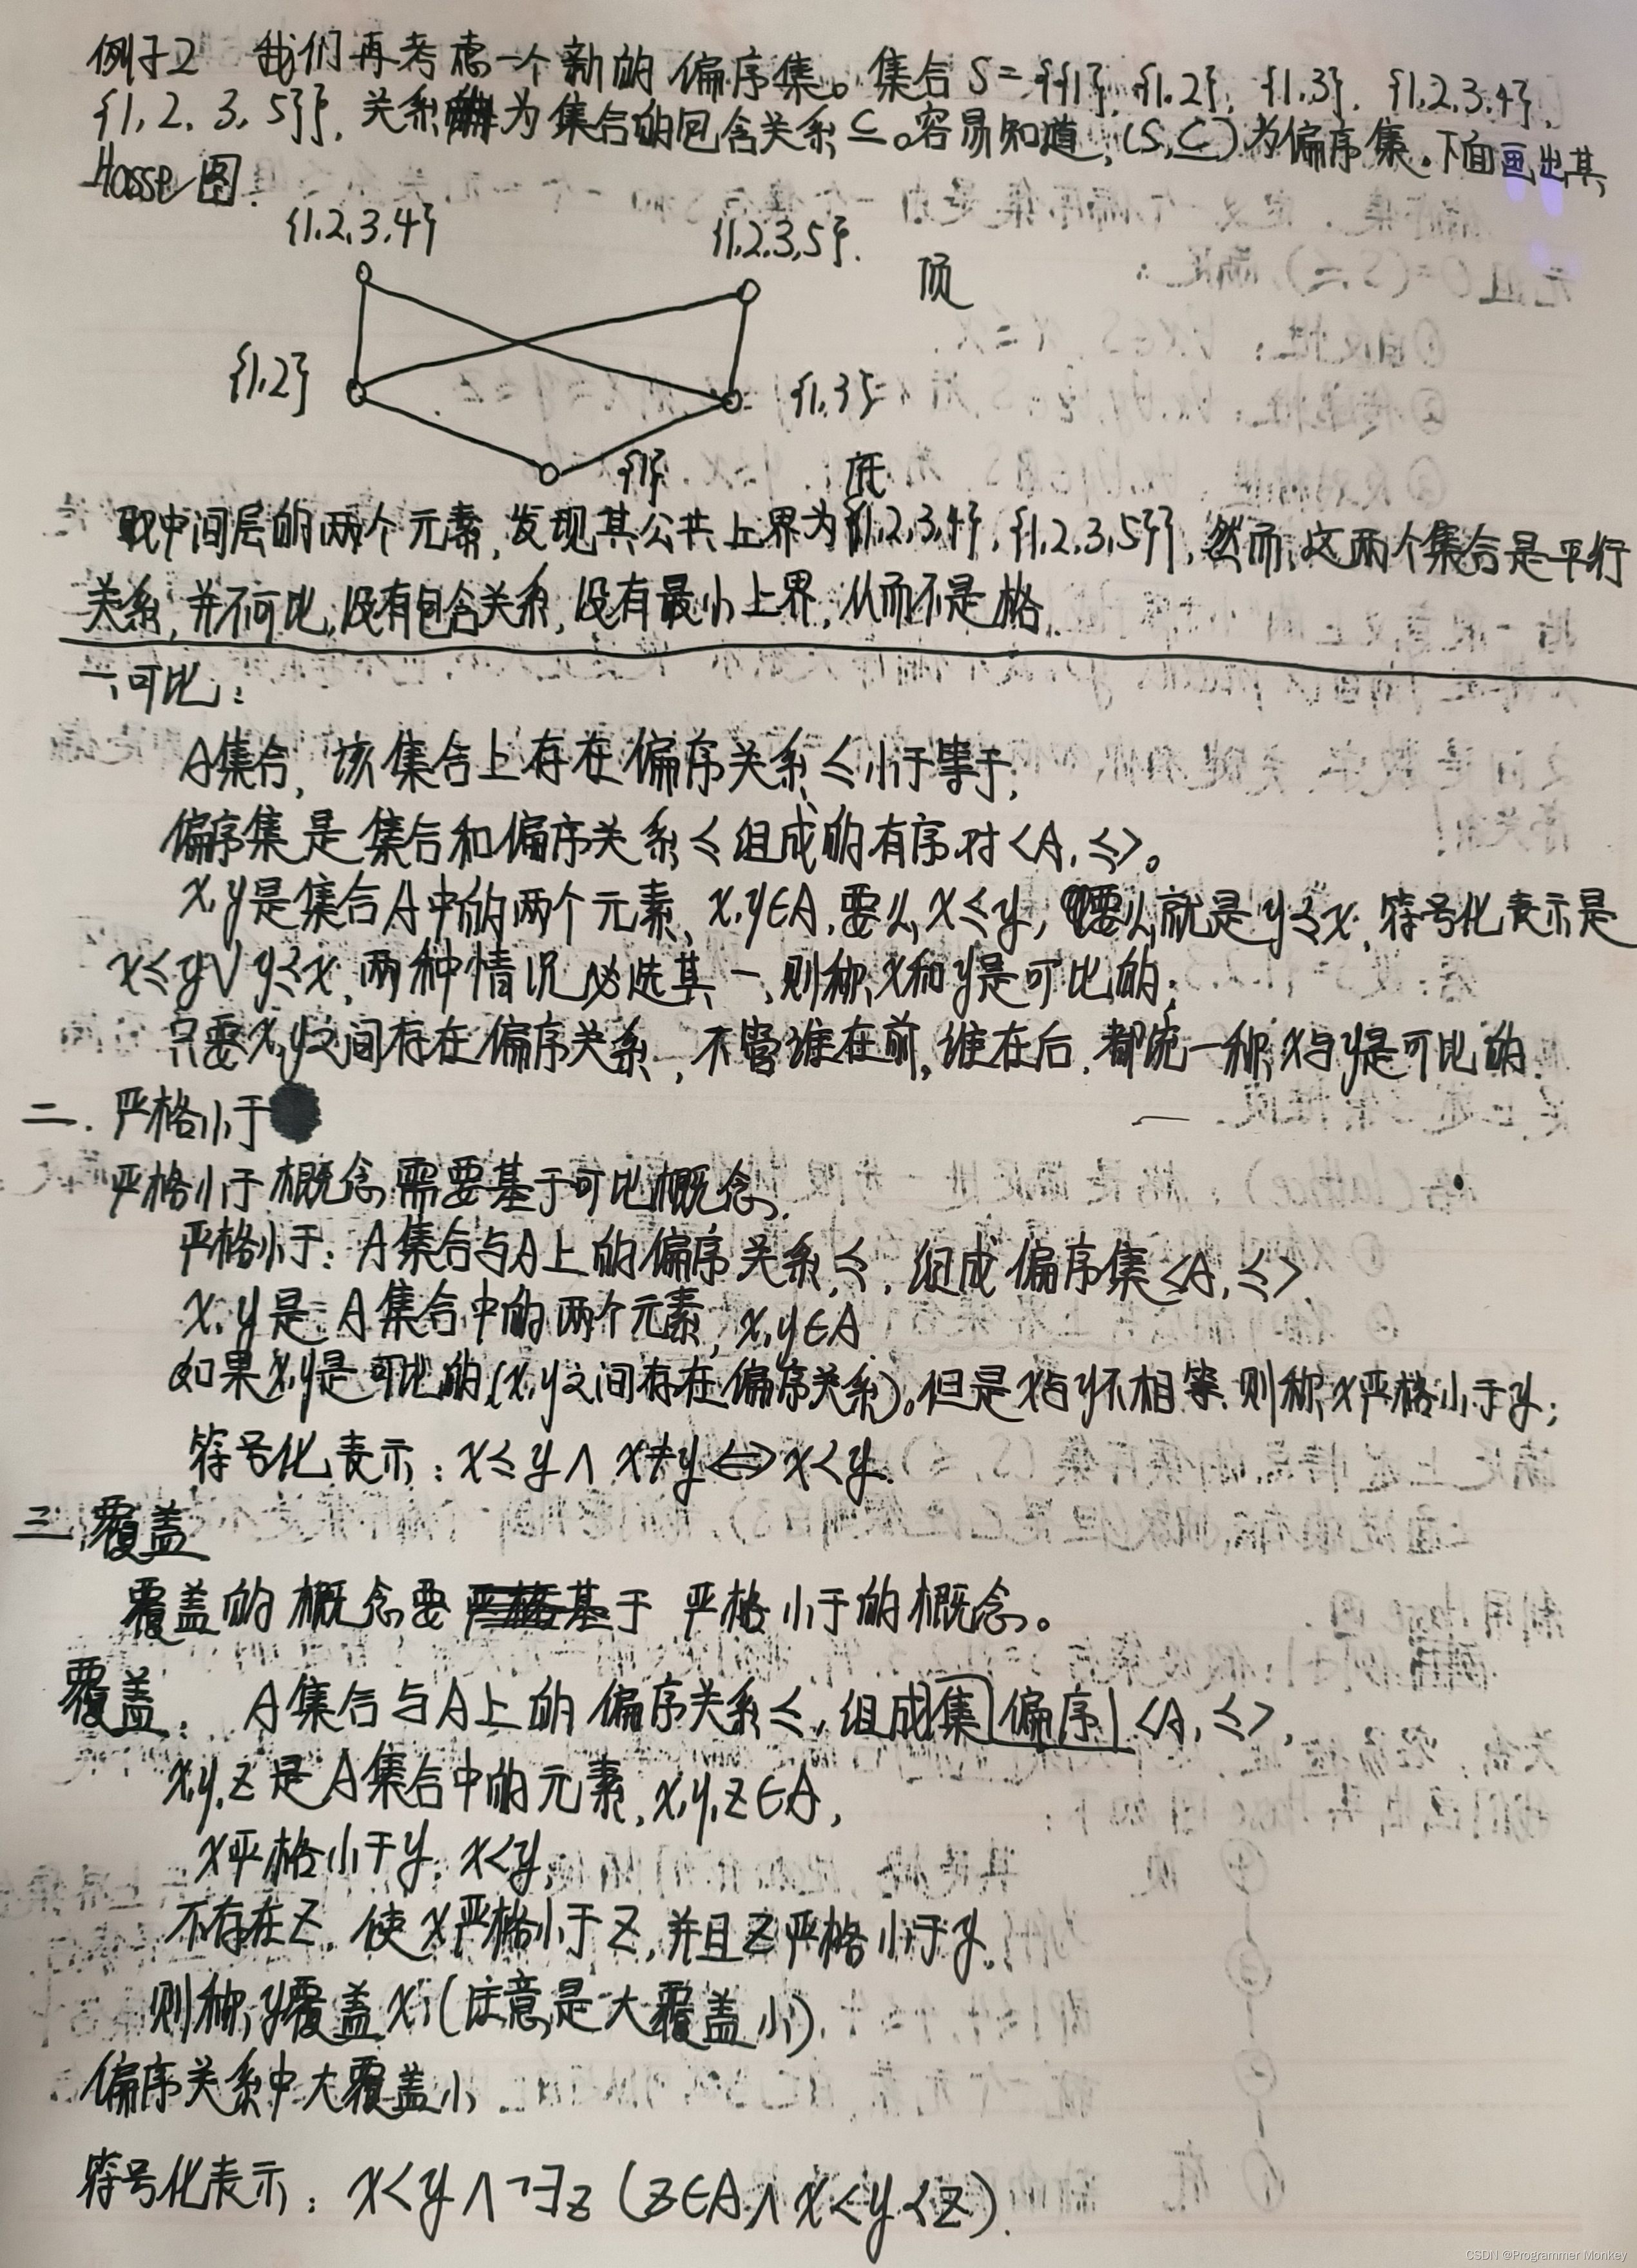 例子2 我们再考虑一个新的偏序集。集合S={{1},{1.2},{1.3},{1,2,3,4},
{1,2,3,5}},关系为集合的包含关系⊆。容易知道,(S,⊆)为偏序集。下面画出其
Hasse图.
{1,2,3,4} {1,2,3,5}.
顶
{1,2} {1,3}
{1} 底
取中间层的两个元素,发现其公共上界为{{1,2,3,4},{1,2,3,5}},然而,这两个集合是平行
关系,并不可比,没有包含关系,没有最小上界,从而不是格.
一、可比:
A集合,该集合上存在偏序关系≤小于等于;
偏序集是集合和偏序关系≤组成的有序对<A,≤>。
x,y是集合A中的两个元素,x,y∈A,要么x≤y,要么就是y≤x,符号化表示是
x≤y∨y≤x,两种情况必选其一,则称x和y是可比的;
只要x,y之间存在偏序关系,不管谁在前,谁在后,都统一称x与y是可比的.
二.严格小于
严格小于概念需要基于可比概念.
严格小于:A集合与A上的偏序关系≤,组成偏序集<A,≤>
x,y是A集合中的两个元素,x,y∈A
如果x,y是可比的(x,y之间存在偏序关系)。但是x与y不相等,则称x严格小于y;
符号化表示:x≤y∧x≠y⇔x<y.
三覆盖
覆盖的概念要基于严格小于的概念。
覆盖:A集合与A上的偏序关系≤,组成集偏序<A,≤>,
x,y,z是A集合中的元素,x,y,z∈A,
x严格小于y,x<y,
不存在z,使x严格小于z,并且z严格小于y。
则称y覆盖x;(注意是大覆盖小).
偏序关系中大覆盖小
符号化表示:x<y∧¬∃z(z∈A∧x<y<z).
CSDN @Programmer Monkey